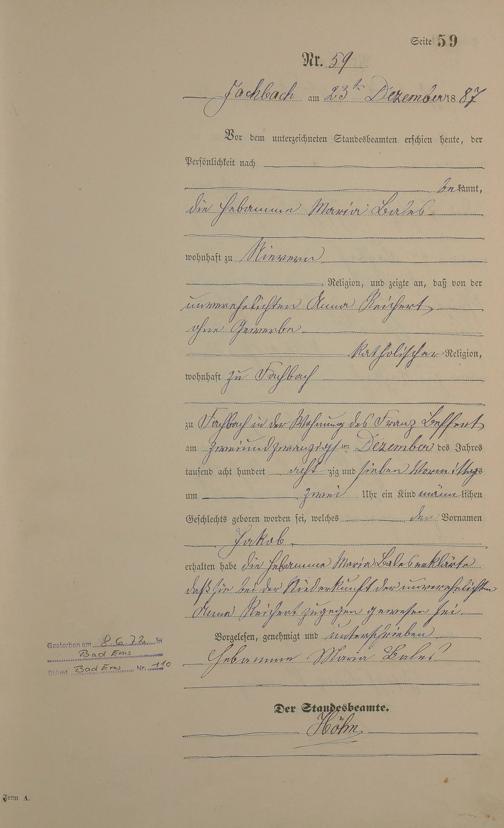 Seite 59
Nr. 59
Fachbach am 23ten Dezember 1887
Vor dem unterzeichneten Standesbeamten erschien heute, der
Persönlichkeit nach
bekannt,
die Hebamme Maria Bales
wohnhaft zu Nievern
Religion, und zeigte an, daß von der
unverehelichten Anna Reichert
ohne Gewerbe
katholischer Religion,
wohnhaft zu Fachbach
zu Fachbach in der Wohnung des Franz
am zweiundzwanzigsten Dezember des Jahres
tausend acht hundert achtzig und sieben Vormittags
um zwei Uhr ein Kind männlichen
Geschlechts geboren worden sei, welches den Vornamen
Jakob
erhalten habe die Hebamme Maria Bales erklärte
daß sie bei der Niederkunft der unverehelichten
Anna Reichert zugegen gewesen sei
Vorgelesen, genehmigt und unterschrieben
Hebamme Maria Bales
Der Standesbeamte.
Höhn
Gestorben am 8.6.72 in
Bad Ems
StAmt Bad Ems Nr. 110
Form A.